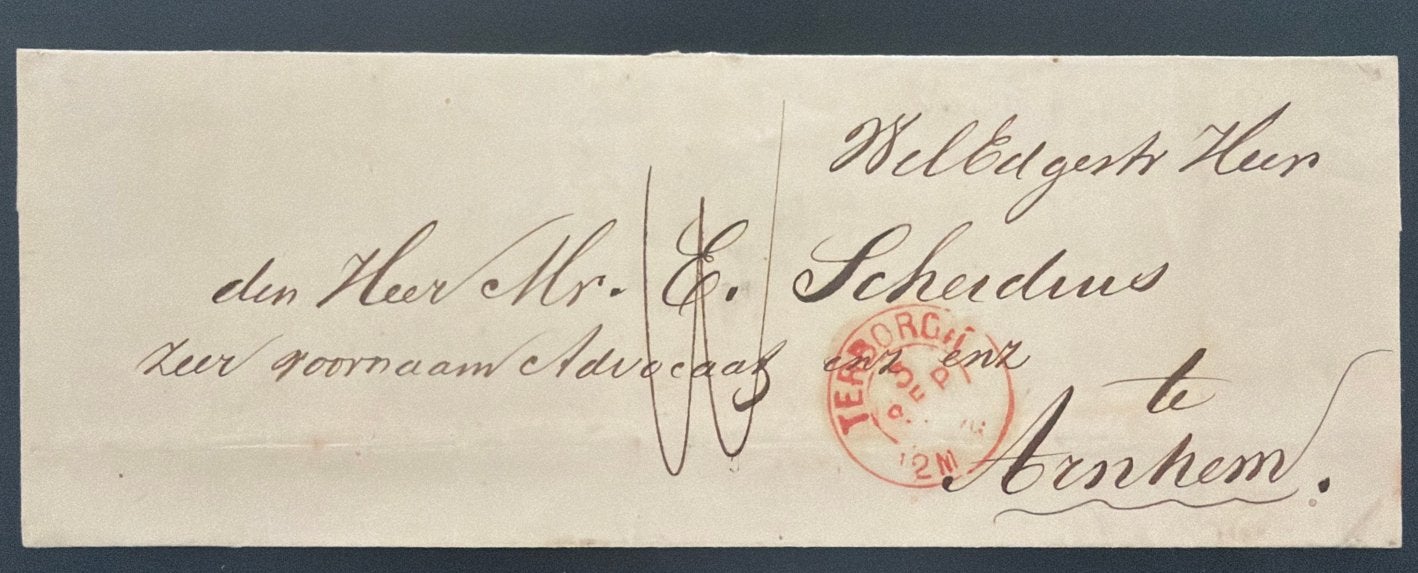 WelEdgestr Heer
den Heer Mr. E. Scheidius
Zeer voornaam Advocaat enz enz
te
Arnhem.
TERBORGH
5
SEP
12M